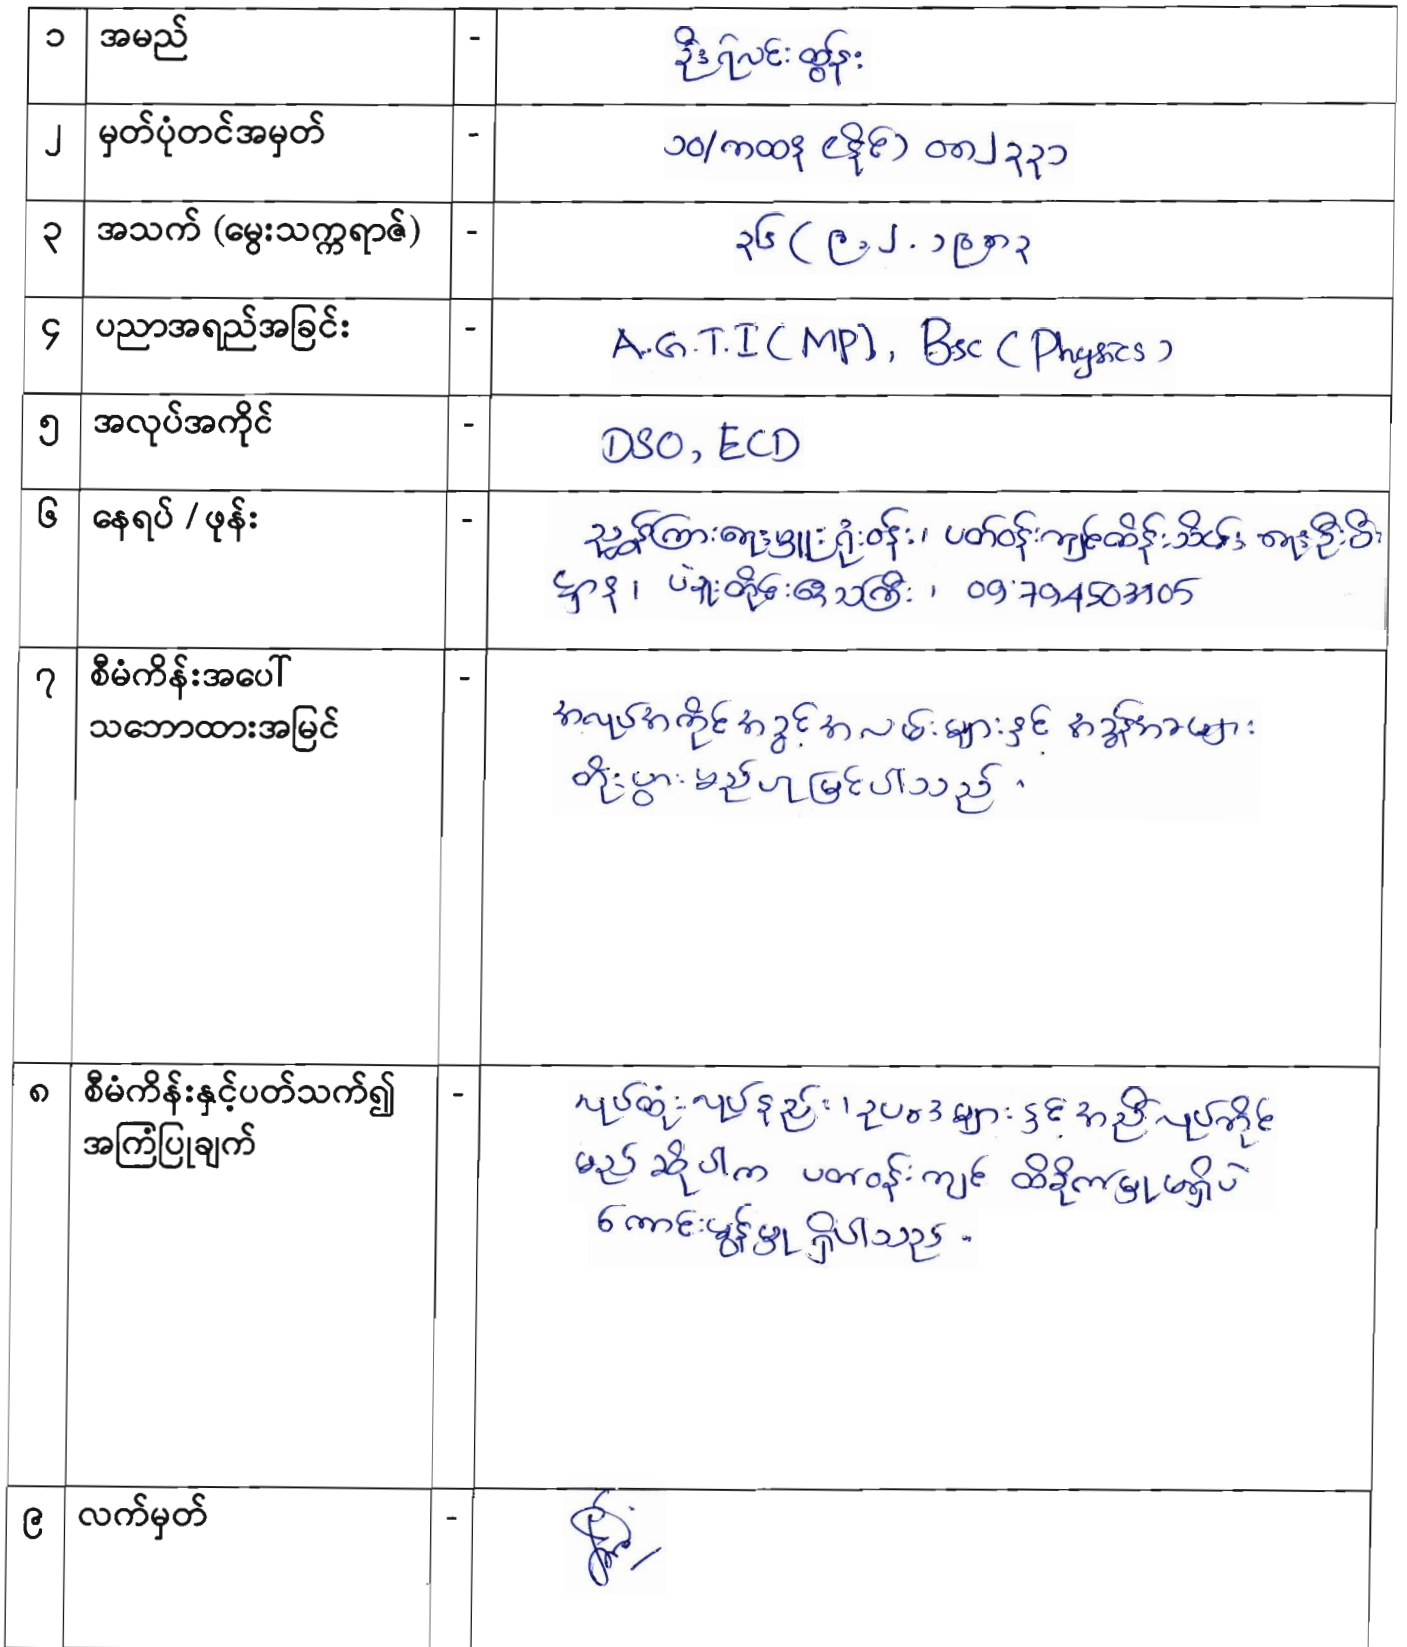 ၁ အမည် - ဒိုဒရဲလင်းထွန်း
၂ မှတ်ပုံတင်အမှတ် - ၁၀/ကထန (နိုင်) ၀၈၂၃၃၁
၃ အသက် (မွေးသက္ကရာဇ်) - ၃၆ ( ၉.၂.၁၉၈၃
၄ ပညာအရည်အခြင်း - A.G.T.I (MP), Bsc (Physics)
၅ အလုပ်အကိုင် - DSO, ECD
၆ နေရပ် / ဖုန်း - ညွှန်ကြားရေးမှူးရုံးဝန်း၊ ပတ်ဝန်းကျင်ထိန်းသိမ်းရေးဦးစီး
ဌာန၊ ပဲခူးတိုင်းဒေသကြီး၊
၇ စီမံကိန်းအပေါ် - အလုပ်အကိုင်အခွင့်အလမ်းများနှင့် အခွန်အခများ
သဘောထားအမြင် တိုးပွားမည်ဟုမြင်ပါသည်။
၈ စီမံကိန်းနှင့်ပတ်သက်၍ - လုပ်ထုံးလုပ်နည်း၊ ဥပဒေများနှင့်အညီလုပ်ကိုင်
အကြံပြုချက် မည်ဆိုပါက ပတ်ဝန်းကျင် ထိခိုက်မှုမရှိပဲ
ကောင်းမွန်မှု ရှိပါသည်။
၉ လက်မှတ် -